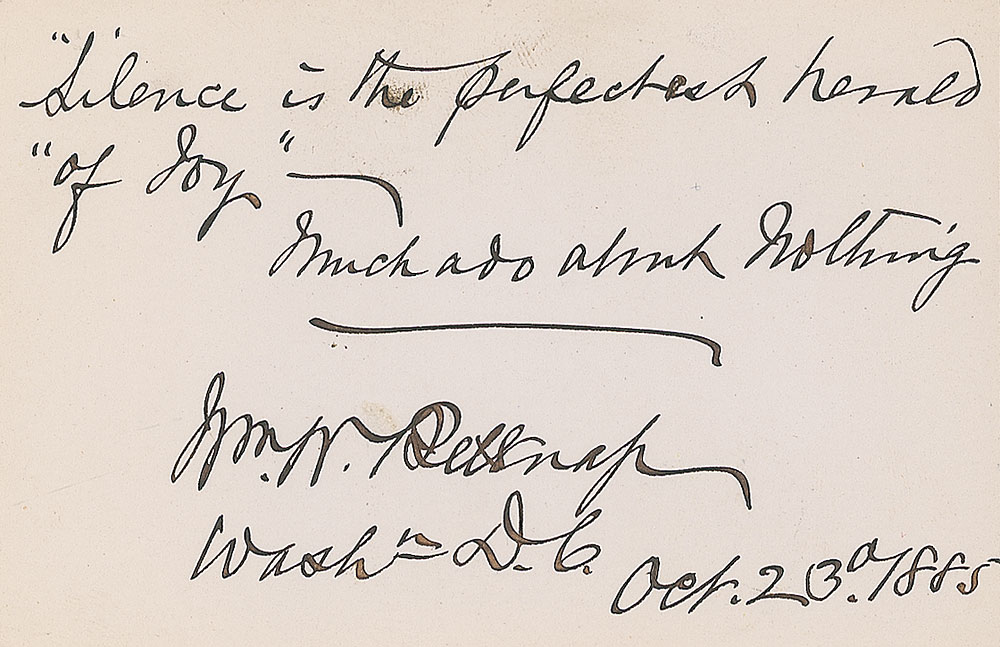 "Silence is the perfectest herald
"of Joy"
Much ado about Nothing
Wm. W. Belknap
Washn D.C.
Oct. 23d. 1885